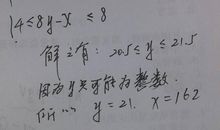 4≤8y-x≤8
解之有: 20.5≤y≤21.5
因为y只可能为整数.
所以 y=21. x=162